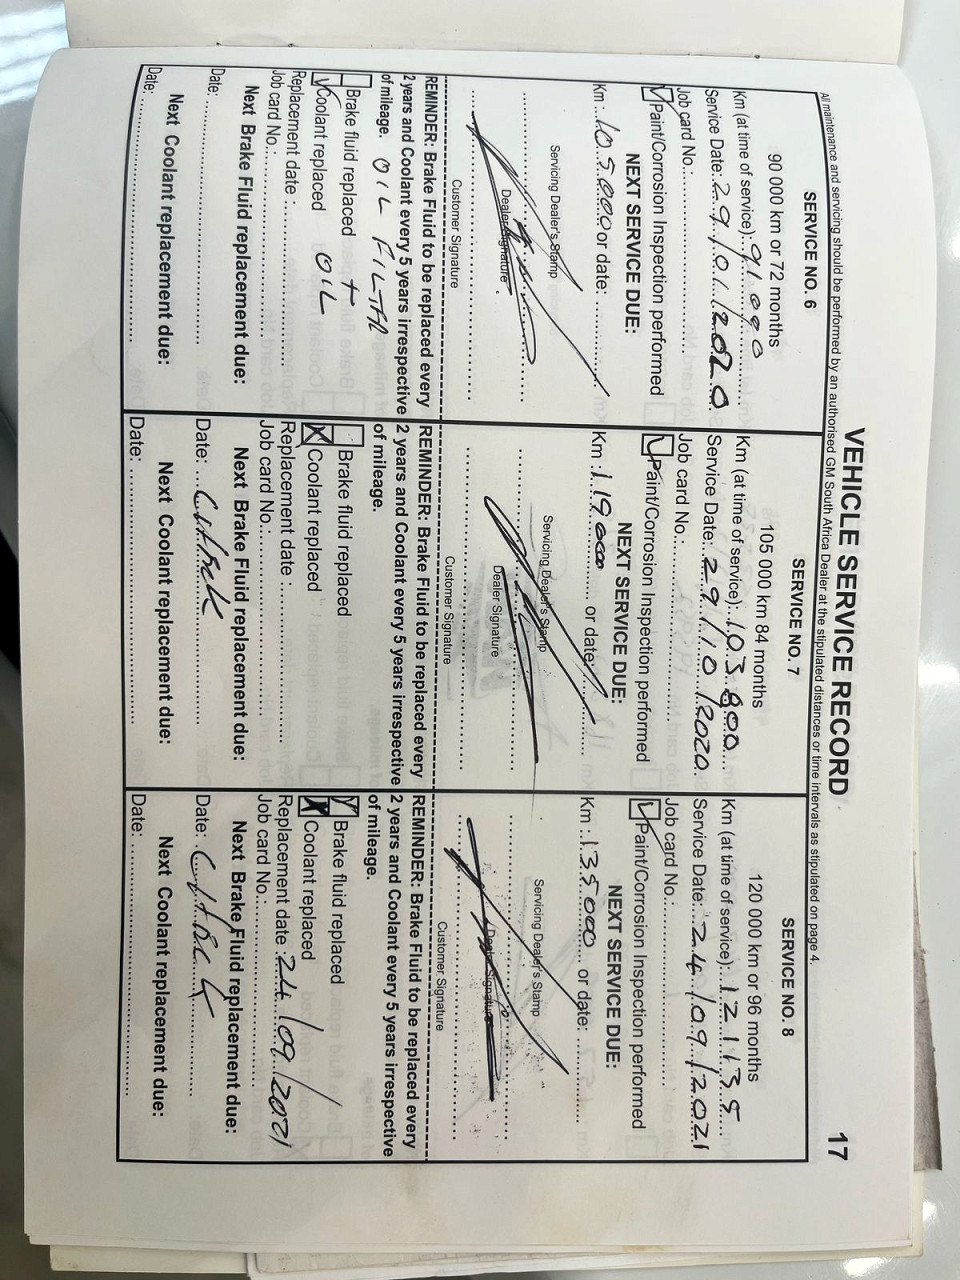 VEHICLE SERVICE RECORD
17
All maintenance and servicing should be performed by an authorised GM South Africa Dealer at the stipulated distances or time intervals as stipulated on page 4.
SERVICE NO. 6
90 000 km or 72 months
Km (at time of service): 91 000
Service Date: 29/01/2020
Job card No.:
Paint/Corrosion Inspection performed
NEXT SERVICE DUE:
Km : 105000 or date:
Servicing Dealer's Stamp
Dealer Signature
Customer Signature
REMINDER: Brake Fluid to be replaced every
2 years and Coolant every 5 years irrespective
of mileage. OIL FILTR
Brake fluid replaced +
Coolant replaced OIL
Replacement date :
Job card No.:
Next Brake Fluid replacement due:
Date:
Next Coolant replacement due:
Date:
SERVICE NO. 7
105 000 km 84 months
Km (at time of service): 103 800
Service Date: 29/10/2020
Job card No.:
Paint/Corrosion Inspection performed
NEXT SERVICE DUE:
Km : 119000 or date:
Servicing Dealer's Stamp
Dealer Signature
Customer Signature
REMINDER: Brake Fluid to be replaced every
2 years and Coolant every 5 years irrespective
of mileage.
Brake fluid replaced
Coolant replaced
Replacement date :
Job card No.:
Next Brake Fluid replacement due:
Date:
Next Coolant replacement due:
Date:
SERVICE NO. 8
120 000 km or 96 months
Km (at time of service): 121138
Service Date: 24/09/2021
Job card No.:
Paint/Corrosion Inspection performed
NEXT SERVICE DUE:
Km : 135000 or date:
Servicing Dealer's Stamp
Dealer Signature
Customer Signature
REMINDER: Brake Fluid to be replaced every
2 years and Coolant every 5 years irrespective
of mileage.
Brake fluid replaced
Coolant replaced
Replacement date 24/09/2021
Job card No.:
Next Brake Fluid replacement due:
Date:
Next Coolant replacement due:
Date: